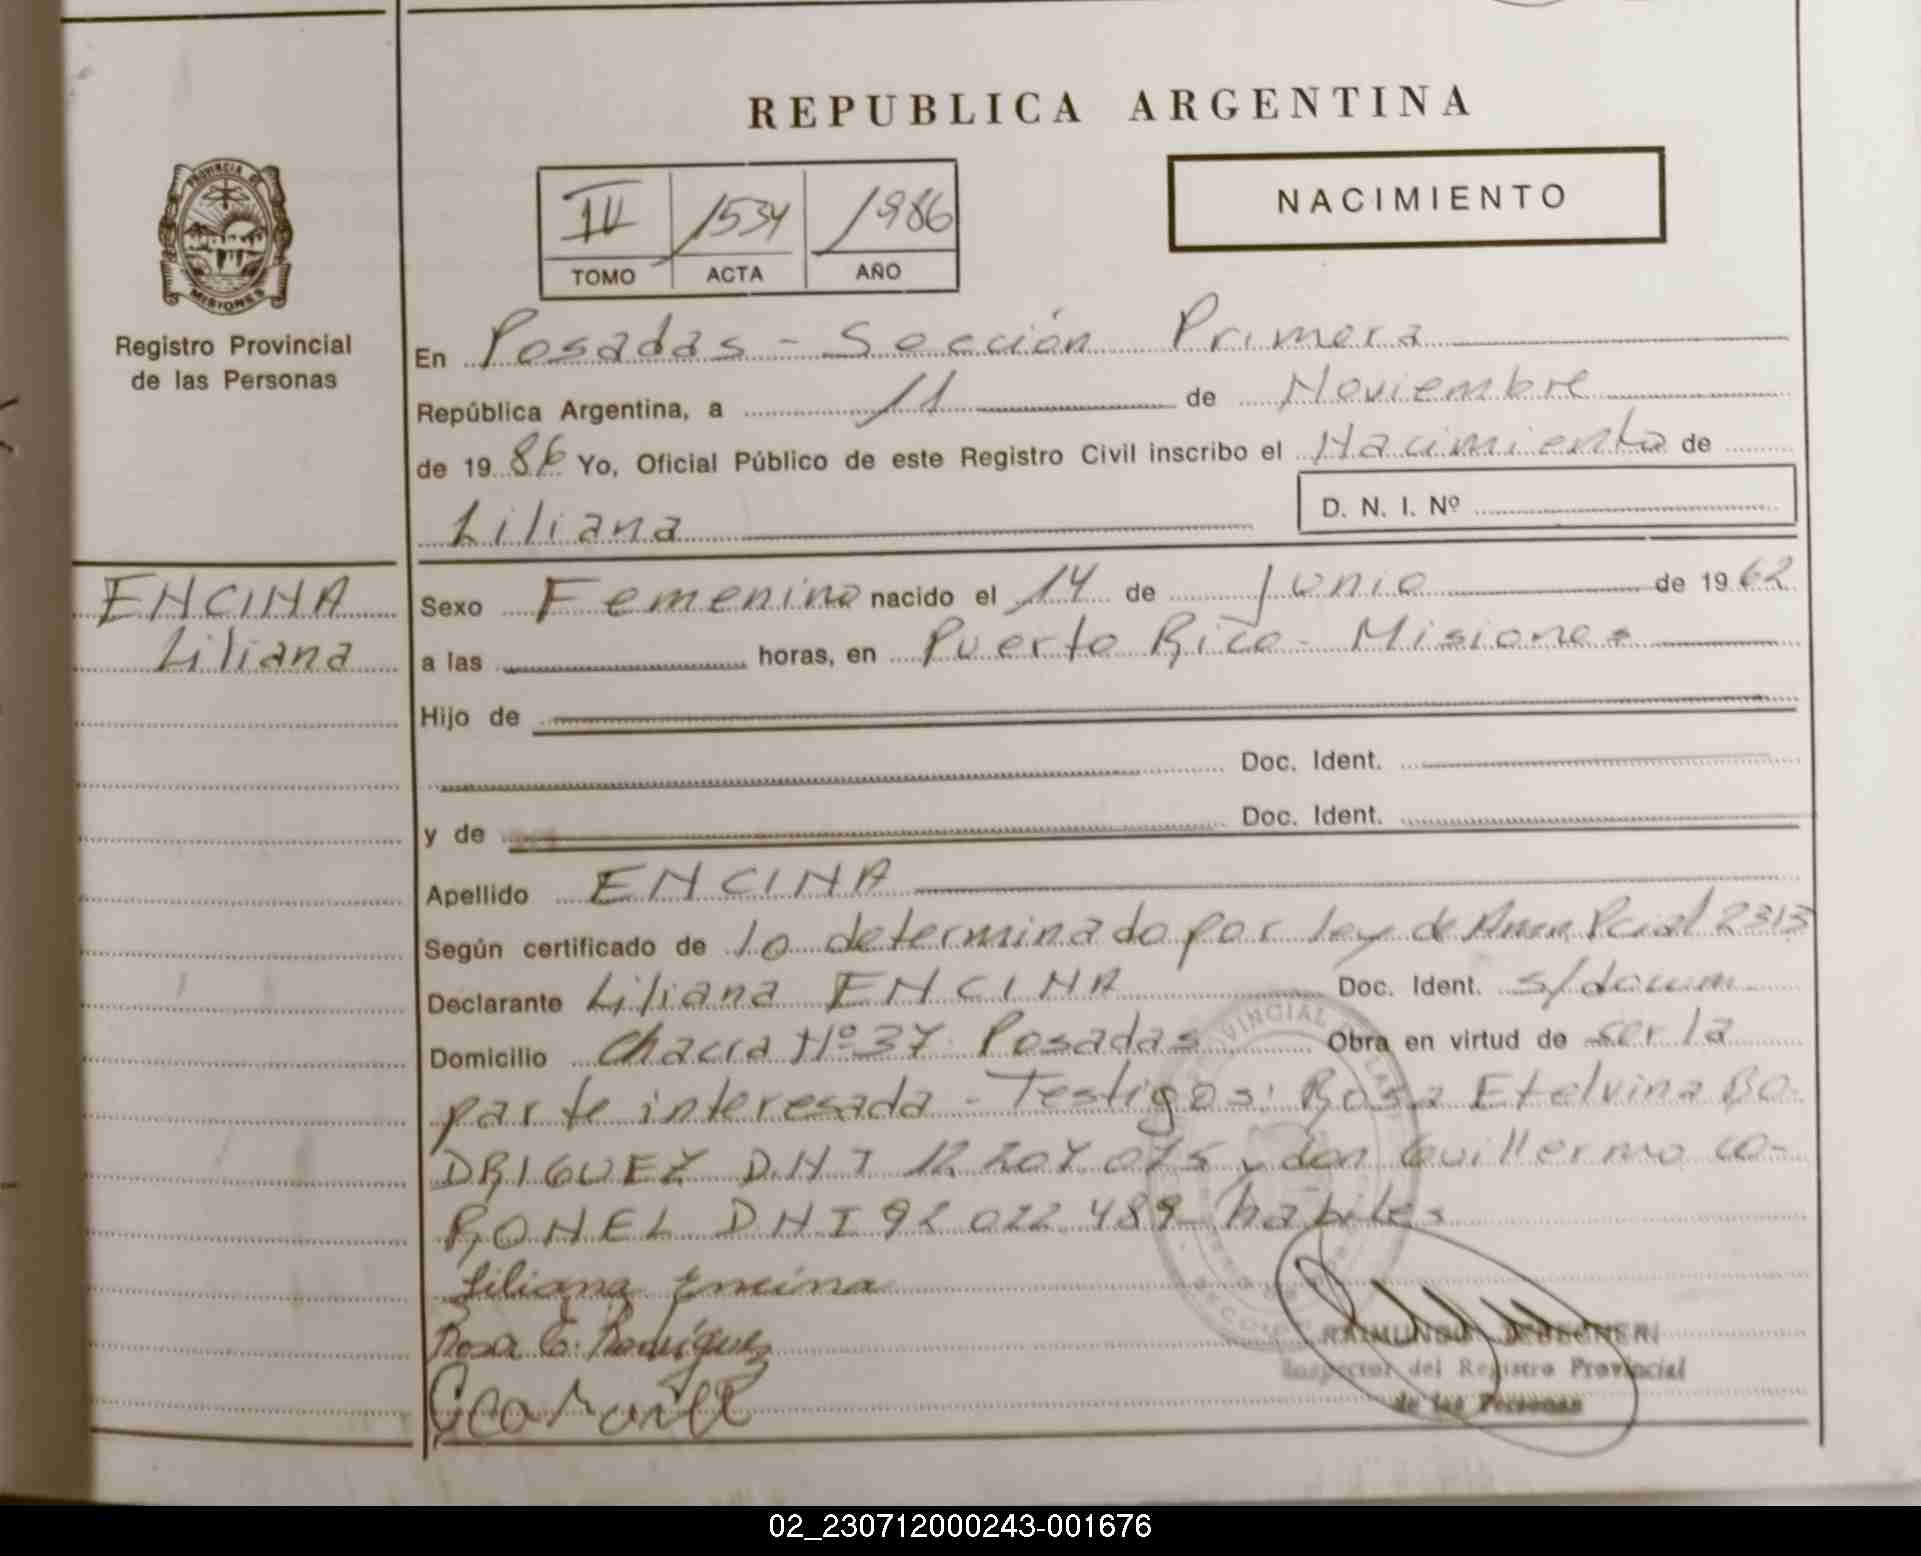 REPUBLICA ARGENTINA
PROVINCIA DE
MISIONES
Registro Provincial
de las Personas
IV 1534 1986
TOMO ACTA AÑO
NACIMIENTO
En Posadas - Sección Primera
República Argentina, a 11 de Noviembre
de 1986 Yo, Oficial Público de este Registro Civil inscribo el Nacimiento de
Liliana D. N. I. Nº
ENCINA
Liliana
Sexo Femenino nacido el 14 de Junio de 1962
a las horas, en Puerto Rico - Misiones
Hijo de
Doc. Ident.
y de Doc. Ident.
Apellido ENCINA
Según certificado de lo determinado por ley de Pcial 2313
Declarante Liliana ENCINA Doc. Ident. s/docum
Domicilio Chacra Nº 37 Posadas Obra en virtud de ser la
parte interesada - Testigos: Rosa Etelvina RO-
DRIGUEZ D.N.I 12 207 075 y don Guillermo CO-
RONEL DNI 92 022 489 hábiles
Liliana Encina
Rosa E. Rodríguez
RAIMUNDO
Inspector del Registro Provincial
de las Personas
02_230712000243-001676